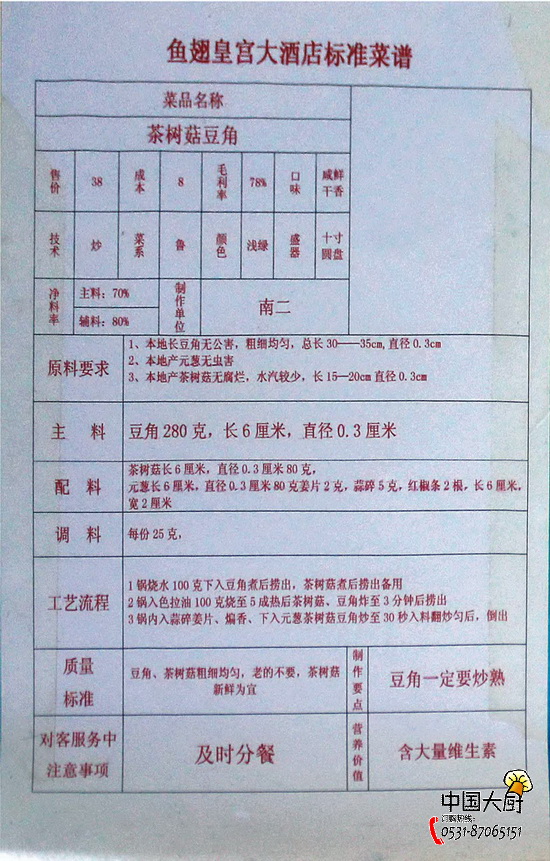 鱼翅皇宫大酒店标准菜谱
菜品名称
茶树菇豆角
售价 38 成本 8 毛利率 78% 口味 咸鲜干香
技术 炒 菜系 鲁 颜色 浅绿 盛器 十寸圆盘
净料率 主料：70% 辅料：80% 制作单位 南二
原料要求
1、本地长豆角无公害，粗细均匀，总长30——35cm,直径0.3cm
2、本地产元葱无虫害
3、本地产茶树菇无腐烂，水汽较少，长15—20cm直径0.3cm
主 料 豆角280克，长6厘米，直径0.3厘米
配 料
茶树菇长6厘米，直径0.3厘米80克，
元葱长6厘米，直径0.3厘米80克姜片2克，蒜碎5克，红椒条2根，长6厘米，
宽2厘米
调 料 每份25克，
工艺流程
1锅烧水100克下入豆角煮后捞出，茶树菇煮后捞出备用
2锅入色拉油100克烧至5成热后茶树菇、豆角炸至3分钟后捞出
3锅内入蒜碎姜片、煸香、下入元葱茶树菇豆角炒至30秒入料翻炒匀后，倒出
质量标准
豆角、茶树菇粗细均匀，老的不要，茶树菇
新鲜为宜
制作要点 豆角一定要炒熟
对客服务中
注意事项
及时分餐
营养价值 含大量维生素
中国大厨
订购热线：
0531-87065151